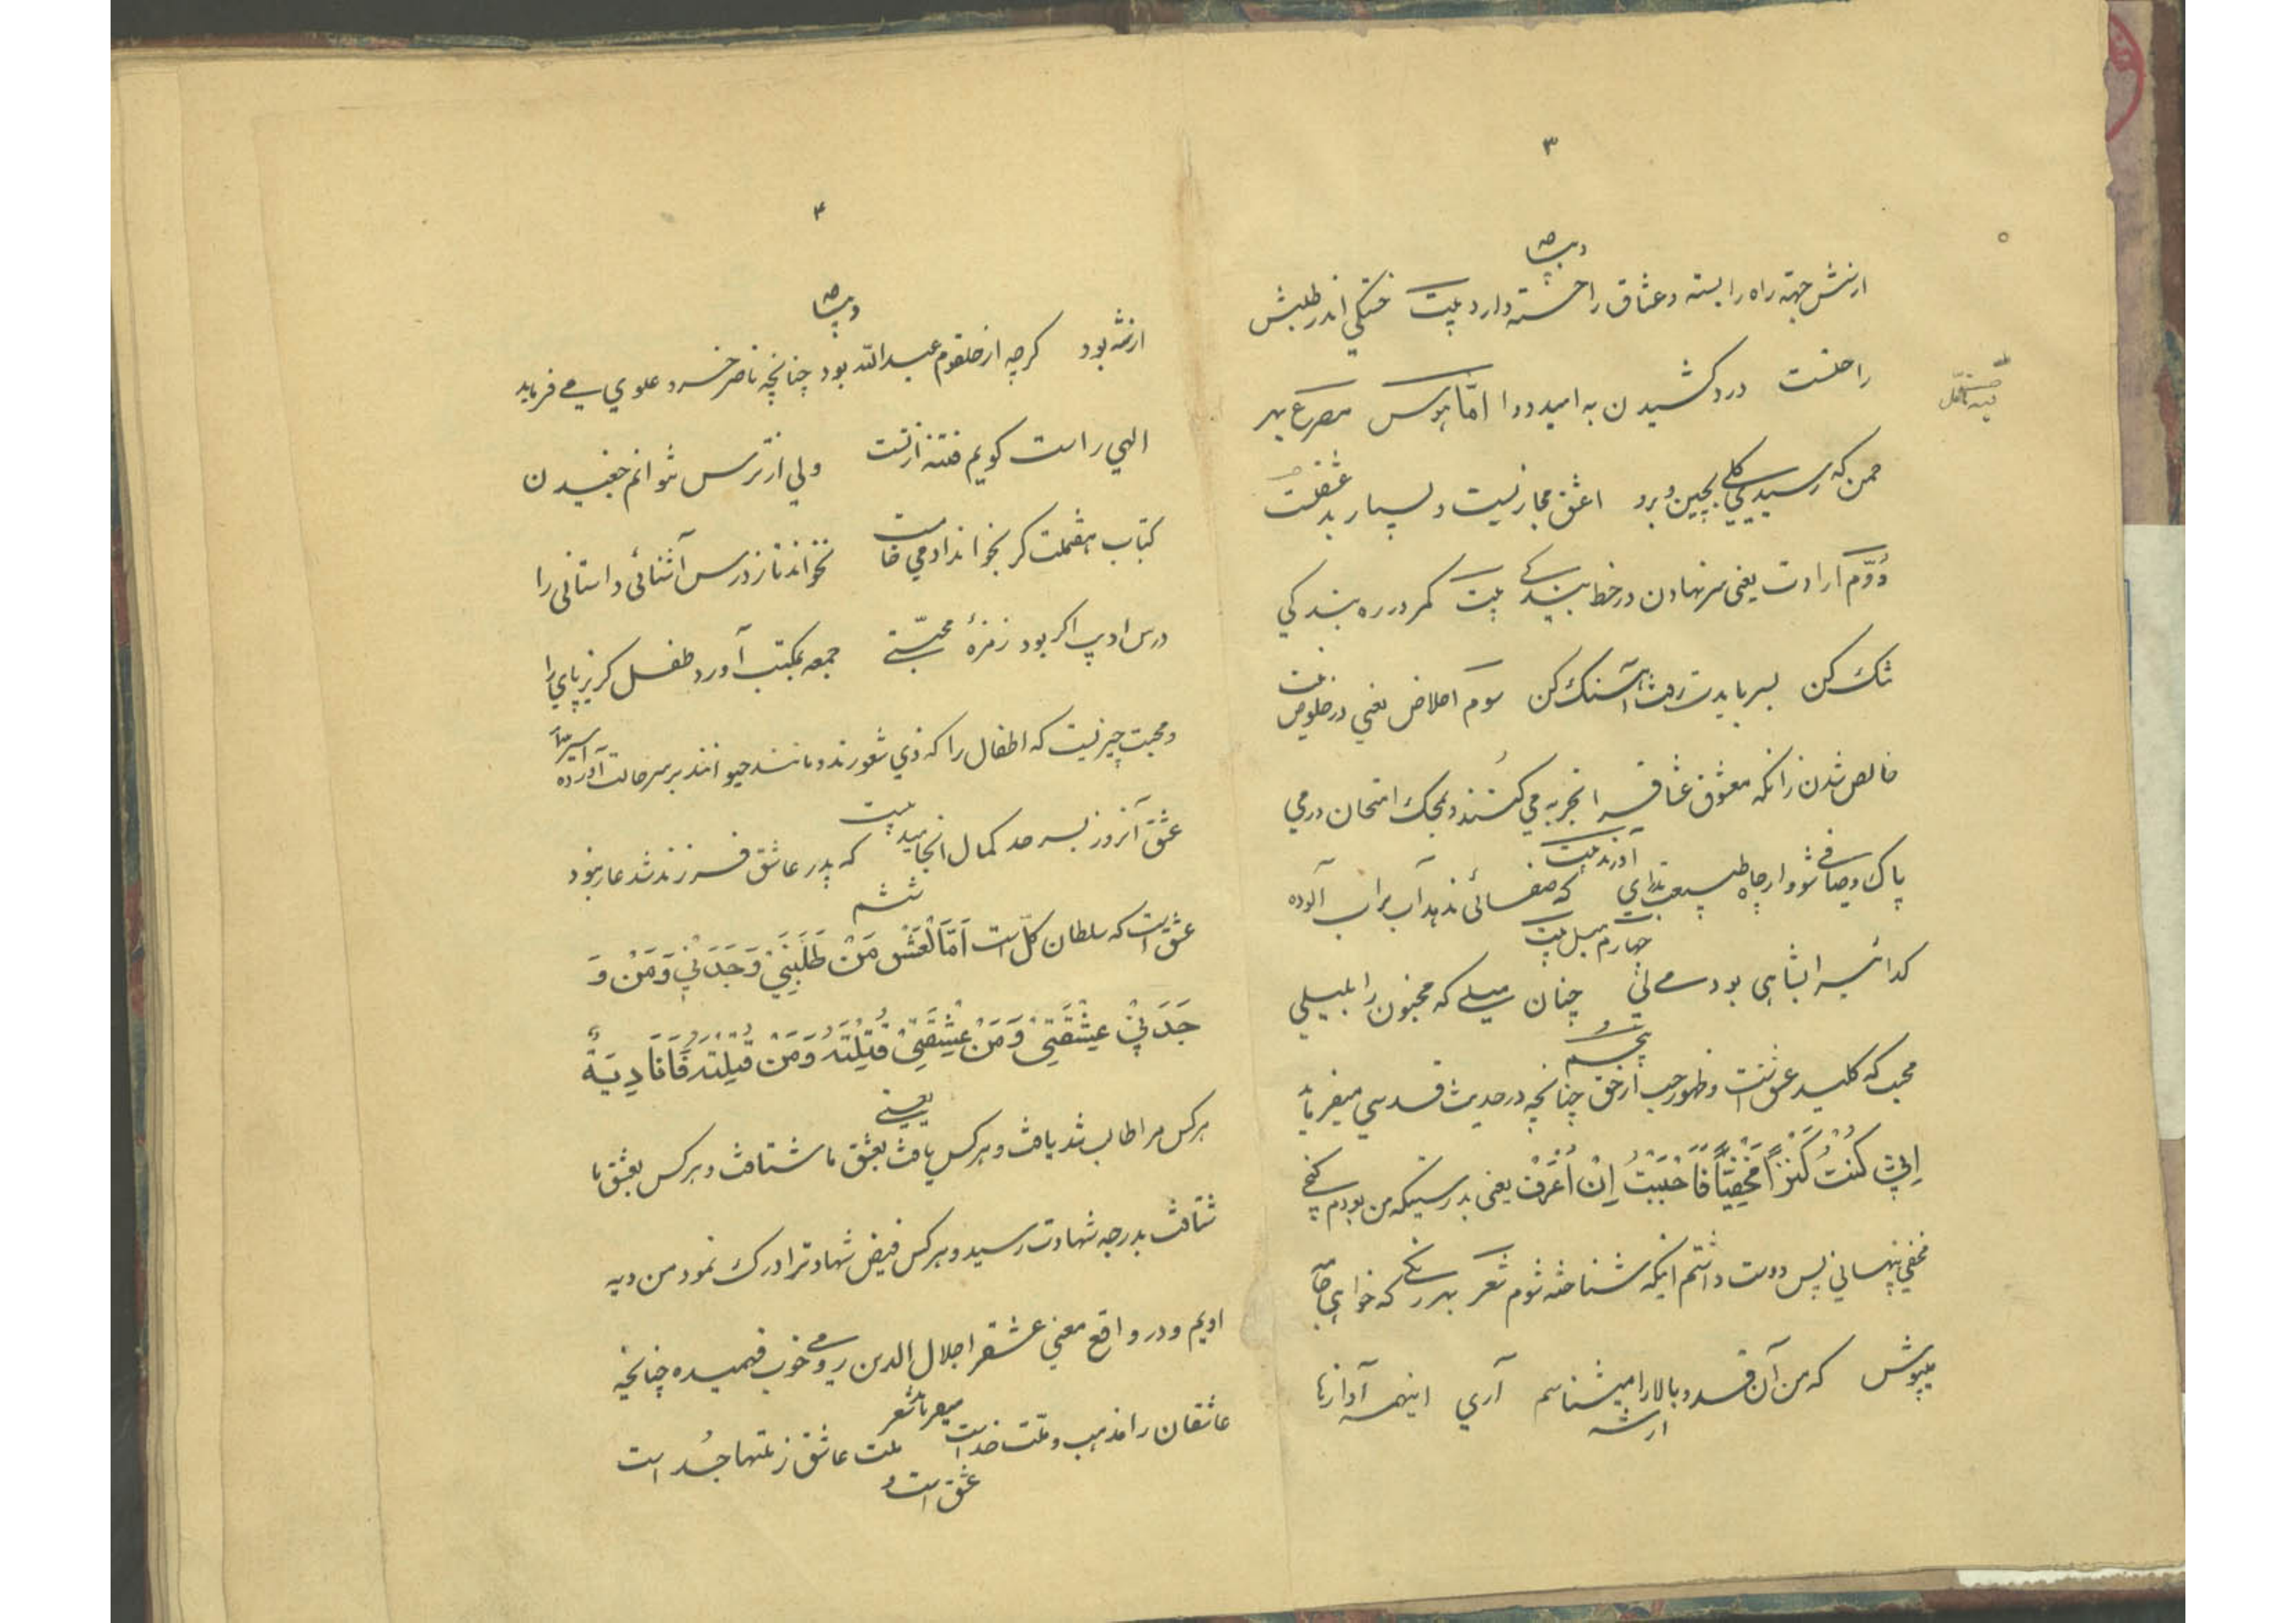 ۳
دیباچه
ازشش جهته راه را بسته و عشاق را خسته دارد بیت خستگی اندر طلبش
راحتست دردکشیدن به امید دوا امّا هوس مصرع بهر
چمن که رسیدی گلی بچین و برو اعشق مجازیست و بسیار بد
دُوّم ارادت یعنی سر نهادن در خط بندگی بیت کمر در ره بندگی
تنک کن بسر بایدت رفت آهنک کن سوم اخلاص یعنی در خلوص
خالص شدن زانکه معشوق عشاق را تجربه می کنند و بمحک امتحان درمی
آورند بیت
پاک و صافی شو و از چاه طبیعت بدرای که صفائی ندهد آب تراب آلوده
چهارم میل بیت
کدائی را بشاهی بود میلی چنان میلی که مجنون را بلیلی
پنجم
محب که کلید عشق تست و ظهور حب از حق چنانچه در حدیث قدسی میفرماید
اِنّي كُنْتُ كَنْزاً مَخْفِيّاً فَاَحْبَبْتُ اِنْ اُعْرَفْ یعنی بدرستیکه من بودم گنج
مخفی پنهانی پس دوست داشتم اینکه شناخته شوم شعر بهر رنگی که خواهی جامه
میپوش که من آن قد و بالا را میشناسم آری اینهمه آوازها
ازشه
۴
دیباچه
ازشه بود کرچه از حلقوم عبدالله بود چنانچه ناصر خسرو علوی می فرماید
الهی راست کویم فتنه از تست ولی از ترس نتوانم چغیدن
کتاب هفت ملت کر بخواند ادمی خامست نخواند تا ز درس آشنائی داستانی را
درس ادیب اکر بود زمزمهٔ محبّتی جمعه بمکتب آورد طفل کریزپای را
و محبت چیزیست که اطفال را که ذی شعورند و مانند حیوانند بر سر حالت آورده
بیت
عشق آنروز بسر حد کمال انجامید که پدر عاشق فرزند شد عار نبود
ششم
عشق است که سلطان کلّ است اَمَّا لْعَشْق مَنْ طَلَبَنِيْ وَجَدَنْيِ وَمَنْ وَ
جَدَنِيْ عَيشَّقَنِيْ وَمَنْ عَيْشَّقَنِيْ قُتِلْتَهُ وَمَنْ قُتِلْتَهُ فَاَنَا دِيَتهُ
یعنی
هر کس مرا طالب شد یافت و هر کس یافت بعشق ما شتافت و هر کس بعشق ما
شتافت بدرجه شهادت رسید و هر کس فیض شهادترا درک نمود من دیه
اویم و در واقع معنی عشقرا جلال الدین رومی خوب فهمیده چنانچه
میفرماید شعر
عاشقان را مذهب و ملّت خداست ملت عاشق ز ملتها جُداست
عشق است و